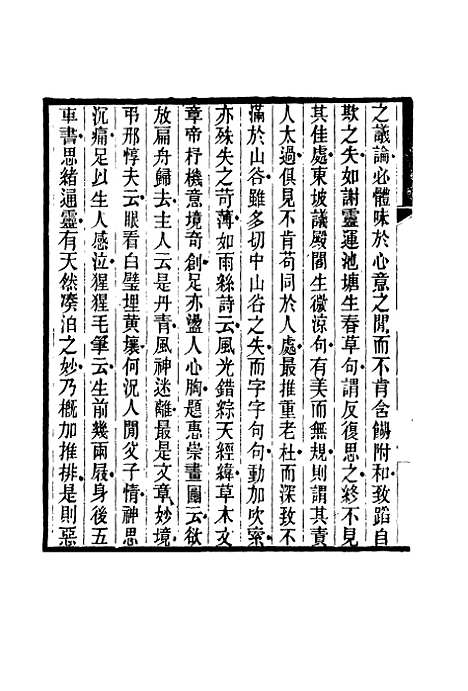 之議論必體味於心意之閒而不肯含餬附和致蹈自
欺之失如謝靈運池塘生春草句謂反復思之終不見
其佳處東坡議殿閣生微涼句有美而無規則謂其責
人太過俱見不肯苟同於人處最推重老杜而深致不
滿於山谷雖多切中山谷之失而字字句句動加吹索
亦殊失之苛薄如雨絲詩云風光錯綜天經緯草木文
章帝杼機意境奇創足亦盪人心胸題惠崇畫圖云欲
放扁舟歸去主人云是丹青風神迷離最是文章妙境
弔邢惇夫云眼看白璧埋黃壤何況人閒父子情神思
沉痛足以生人感泣猩猩毛筆云生前幾兩屐身後五
車書思緒通靈有天然湊泊之妙乃概加推排是則惡